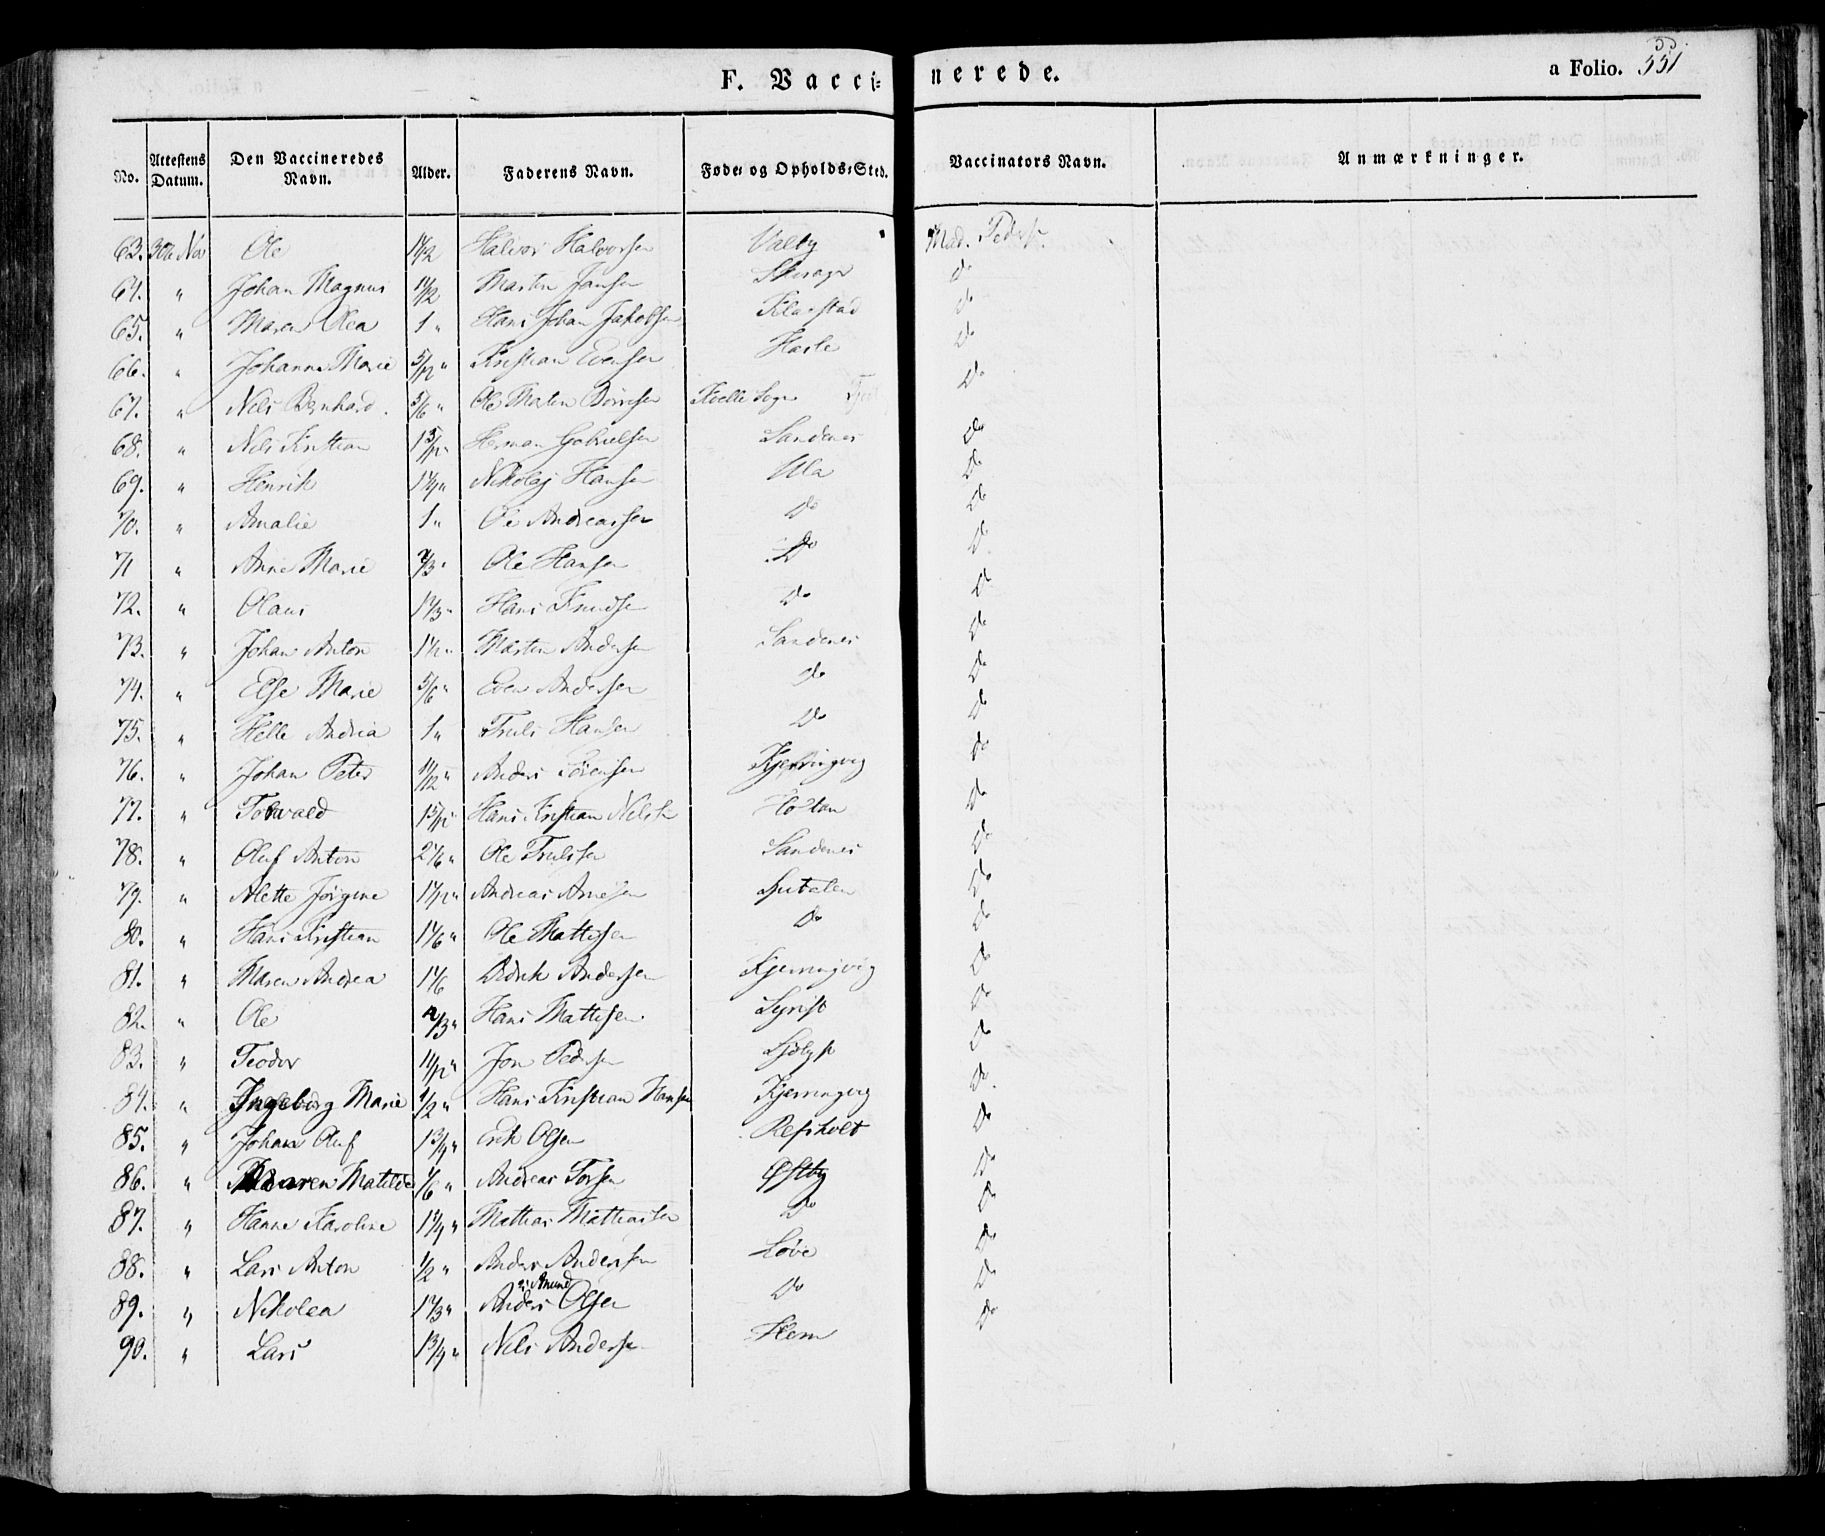 F. Vaccinerede. a Folio. 331
No. Attestens Datum. Den Vaccineredes Navn. Alder. Faderens Navn. Føde- og Opholds-Sted. Vaccinators Navn. Anmærkninger.
63. 30te Nov Ole 1 1/2 Halvor Halvorsen Valby Mad. Peders.
64. " Johan Magnus 1 1/2 Martin Jansen Do
65. " Maren Olea 1 " Hans Johan Jakobsen Klaastad Do
66. " Johanne Marie 5/12 " Kristian Evensen Haste Do
67. " Nels Bernhard 5/6 " Ole Morten Sogn Do
68. " Nels Kristian 1 5/12 " Herman Gabrielsen Sandenes Do
69. " Henrik Nikolaj Hansen Ula Do
70. " Amalie 1 " Ole Andreassen Do Do
71 " Anne Marie 2/3 " Ole Hansen Do Do
72. " Olaus 1 1/3 " Hans Knudsen Do Do
73. " Johan Anton Morten Andersen Sandenes Do
74. " Else Marie 5/6 " Even Andersen Do Do
75. " Helle Andrea 1 " Truls Hansen Do Do
76. " Johan Peter 11/12 " Anders Sørensen Kjerringvig Do
77. " Torvald 1 5/12 Hans Kristian Nelsen Do
78. " Oluf Anton 2 1/6 " Ole Trulssen Sandenes Do
79. " Alette Jørgine Andreas Arnesen Do
80. " Hans Kristian 1 1/6 " Ole Mattisen Do Do
81. " Maren Andrea 1 1/6 Didrik Andersen Kjerringvig Do
82. " Ole 2/3 " Hans Mattisen Do
83. " Teodor 11/12 " Jon Pedersen Do
84. " Ingeborg Marie 1/2 " Hans Kristian Hansen Kjerringvig Do
85. " Johan Oluf 1 3/4 " Erik Olsen Refsholt Do
86. " Maren Matilde 1/6 " Andreas Torsen Østby Do
87. " Hanne Karoline 1 1/4 " Mathias Mathiassen Do Do
88. " Lars Anton 1/2 " Anders Anderssen Løve Do
89. " Nikolea 1 1/3 " Anders Amund Olsen Do Do
90. " Lars 1 3/4 " Nels Andersen Hem Do